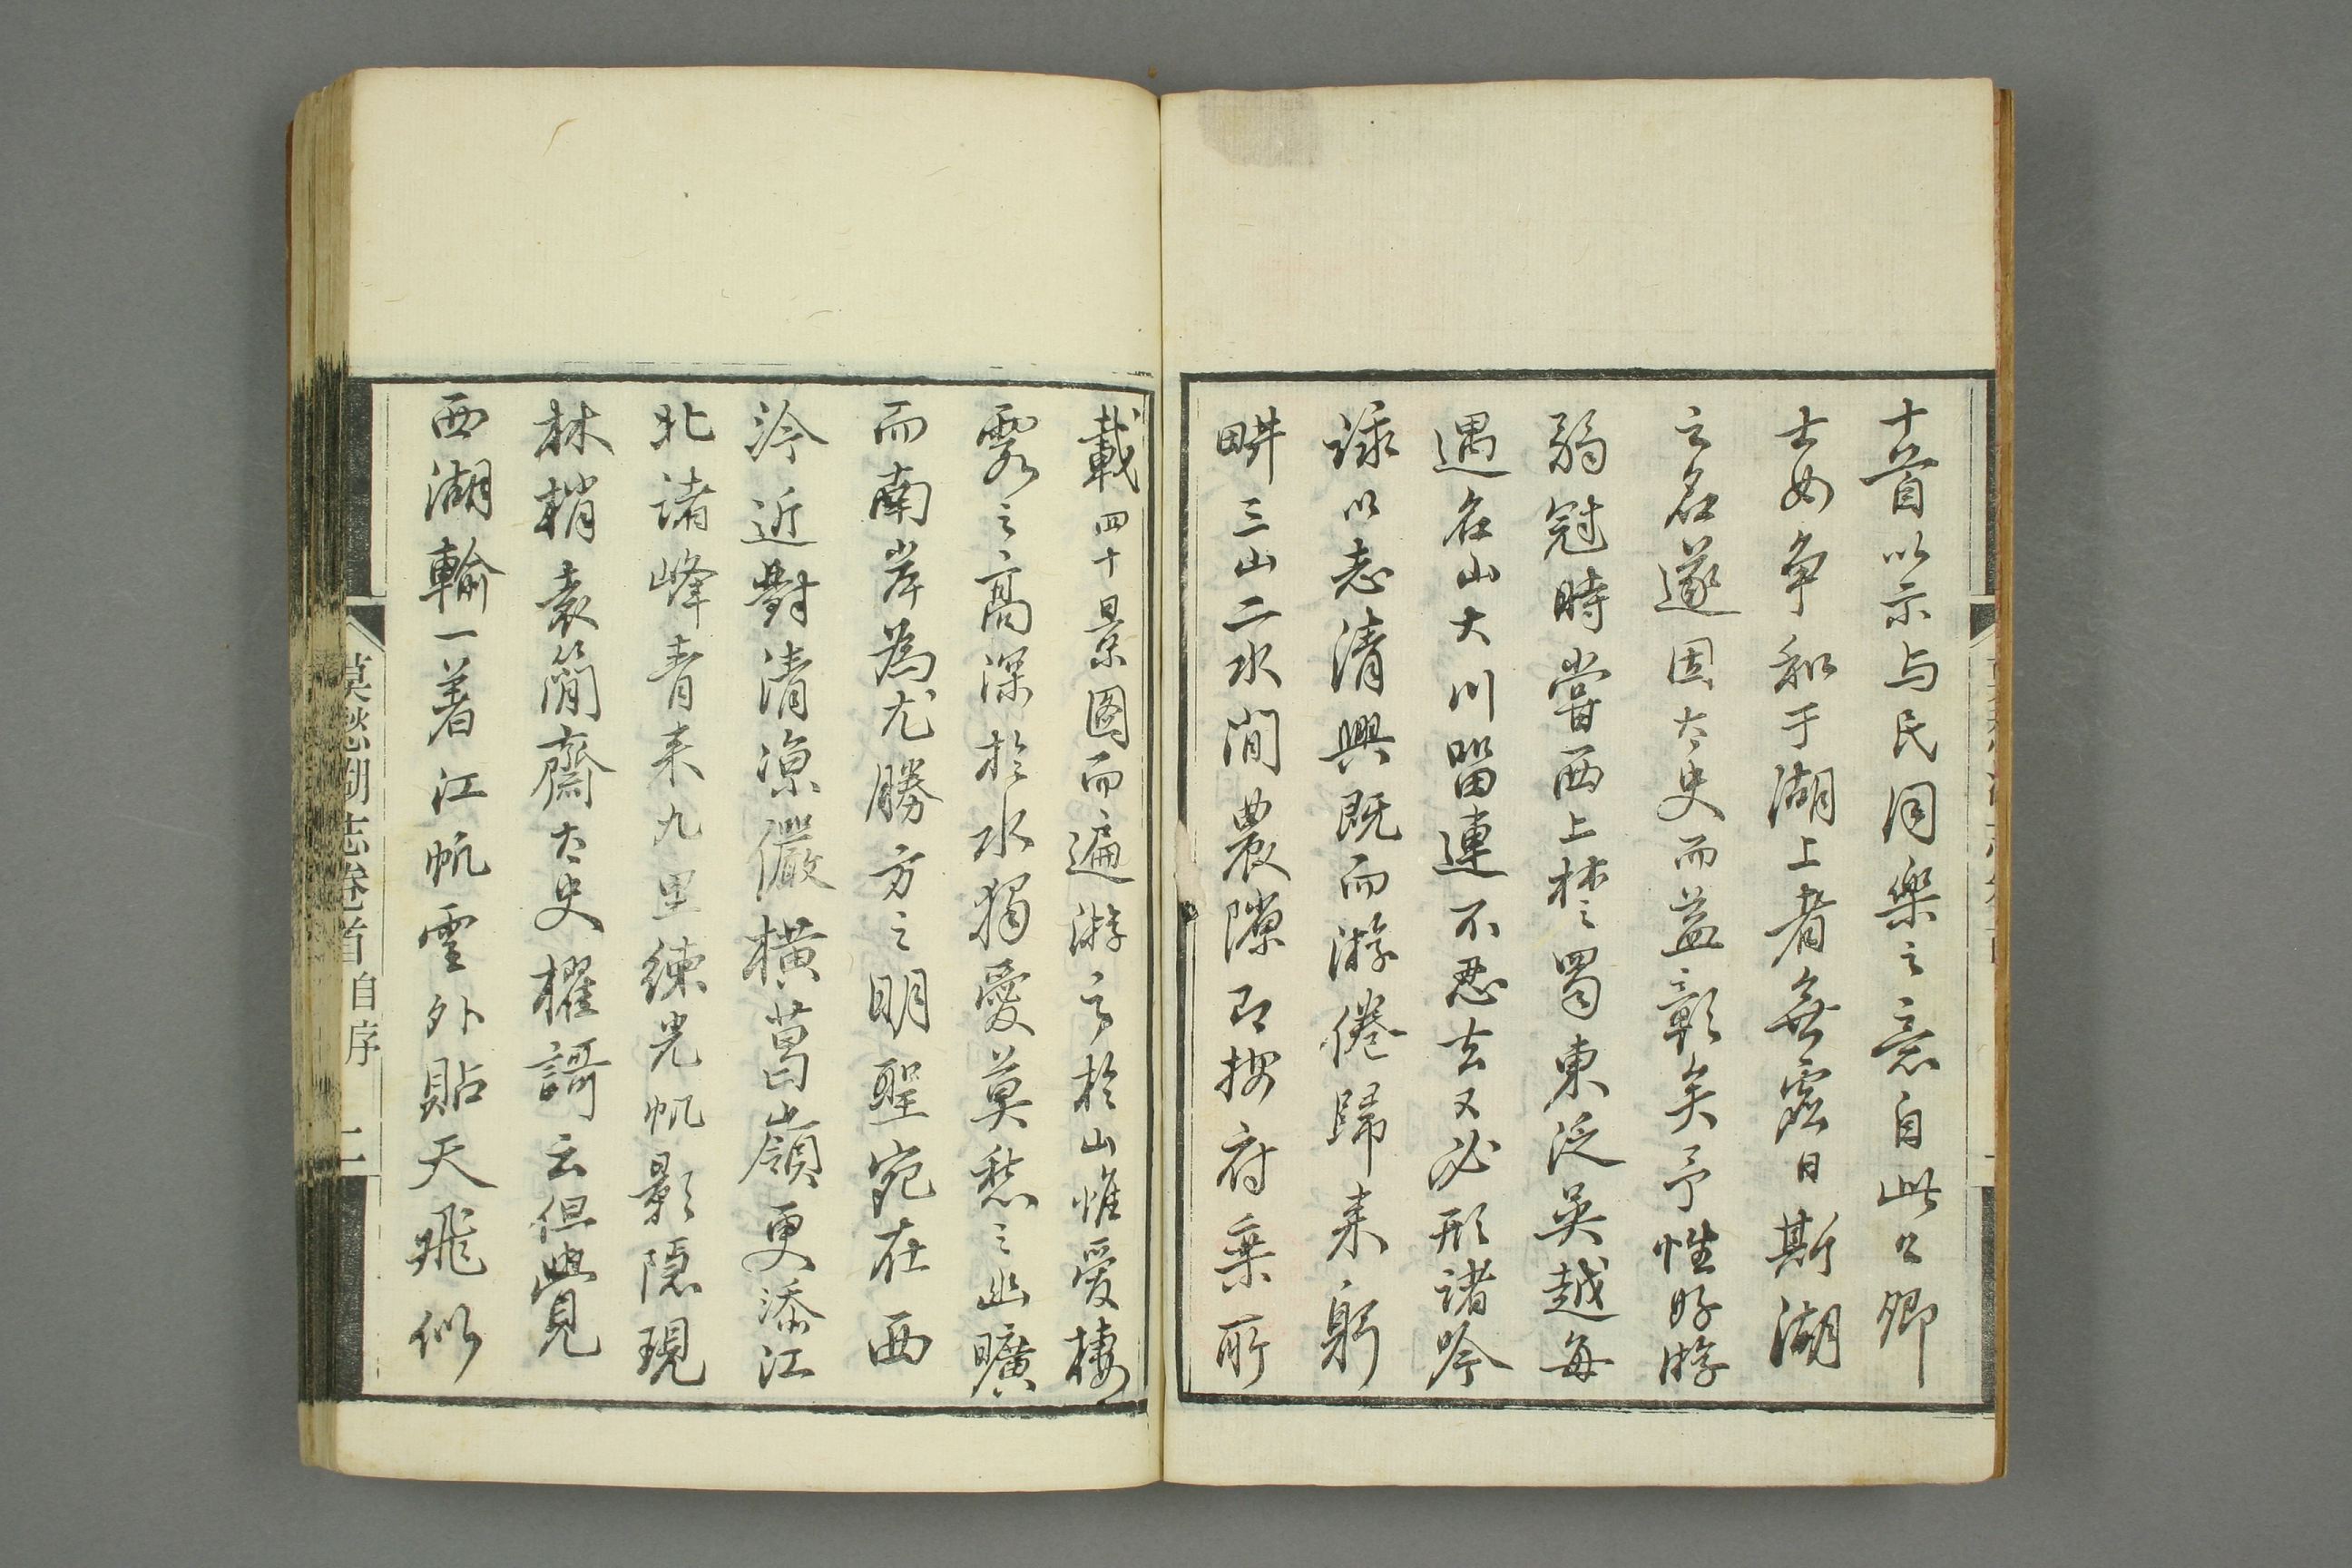 十首以示与民同樂之意自此公卿
士女争和于湖上者無虛日斯湖
之名遂因太史而益彰矣予性好游
弱冠時嘗西上楚蜀東泛吳越每
遇名山大川留連不忍去又必形諸吟
詠以志清興既而游倦歸来躬
耕三山二水間農隙即按府乘所
載四十景圖而遍游之於山惟愛棲
霞之高深於水獨愛莫愁之幽曠
而南岸為尤勝方之明聖宛在西
泠近對清涼儼横葛嶺更添江
北諸峰青来九里練光帆影隱現
林梢袁簡齋太史櫂謌云但覺
西湖輸一著江帆雲外貼天飛似
莫愁湖志卷首 自序 二